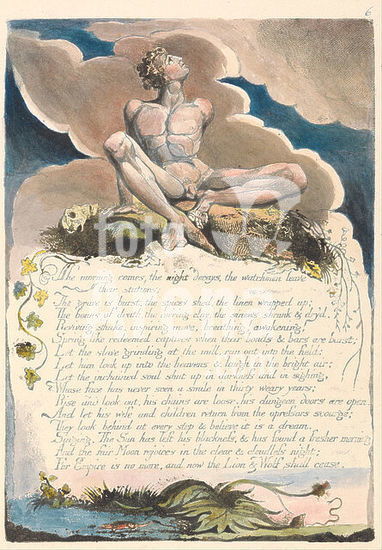 6
The morning comes, the night decays, the watchmen leave
their stations;
The grave is burst, the spices shed, the linen wrapped up;
The bones of death, the cov'ring clay, the sinews shrunk & dry'd,
Reviving shake, inspiring move, breathing! awakening!
Spring like redeemed captives when their bonds & bars are burst;
Let the slave grinding at the mill, run out into the field:
Let him look up into the heavens & laugh in the bright air;
Let the inchained soul shut up in darkness and in sighing,
Whose face has never seen a smile in thirty weary years;
Rise and look out, his chains are loose, his dungeon doors are open.
And let his wife and children return from the opressors scourge;
They look behind at every step & believe it is a dream.
Singing. The Sun has left his blackness, & has found a fresher morning
And the fair Moon rejoices in the clear & cloudless night;
For Empire is no more, and now the Lion & Wolf shall cease.